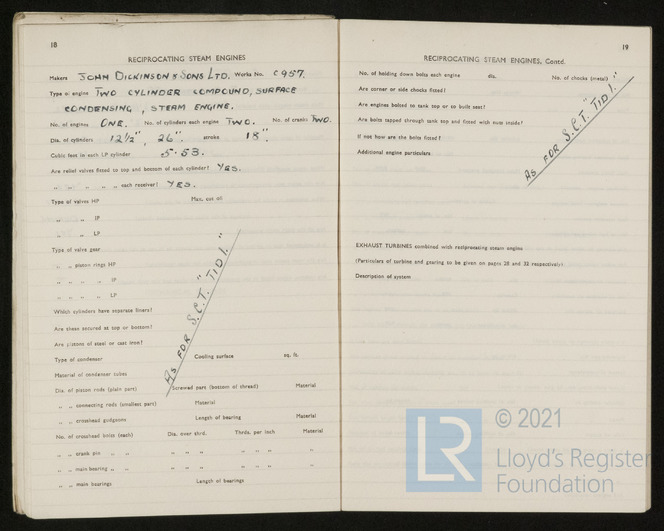 18
RECIPROCATING STEAM ENGINES
Makers JOHN DICKINSON & SONS LTD. Works No. C957.
Type of engine TWO CYLINDER COMPOUND, SURFACE
CONDENSING, STEAM ENGINE.
No. of engines ONE. No. of cylinders each engine TWO. No. of cranks TWO.
Dia. of cylinders 12½", 26". stroke 18".
Cubic feet in each LP cylinder 5.53.
Are relief valves fitted to top and bottom of each cylinder? YES.
" " " " " each receiver? YES.
Type of valves HP Max. cut off
" " IP
" " LP
Type of valve gear
" " piston rings HP
" " " " IP
" " " " LP
Which cylinders have separate liners?
Are these secured at top or bottom?
Are pistons of steel or cast iron?
Type of condenser Cooling surface sq. ft.
Material of condenser tubes
Dia. of piston rods (plain part) Screwed part (bottom of thread) Material
" " connecting rods (smallest part) Material
" " crosshead gudgeons Length of bearing Material
No. of crosshead bolts (each) Dia. over thrd. Thrds. per inch Material
" " crank pin " " " " " " " " "
" " main bearing " " " " " " " " "
" " main bearings Length of bearings
AS FOR S.C.T. "TID 1."
19
RECIPROCATING STEAM ENGINES, Contd.
No. of holding down bolts each engine dia. No. of chocks (metal)
Are corner or side chocks fitted?
Are engines bolted to tank top or to built seat?
Are bolts tapped through tank top and fitted with nuts inside?
If not how are the bolts fitted?
Additional engine particulars
AS FOR S.C.T. "TID 1."
EXHAUST TURBINES combined with reciprocating steam engine
(Particulars of turbine and gearing to be given on pages 28 and 32 respectively)
Description of system
LR
© 2021
Lloyd's Register
Foundation